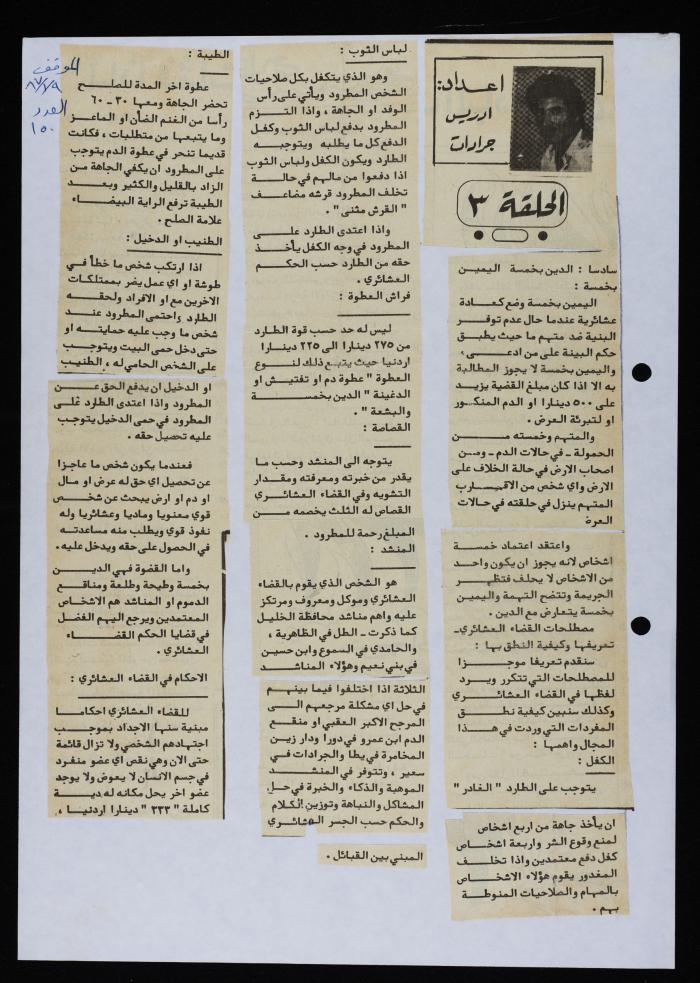 اعداد:
ادريس
جرادات
الحلقة ٣
سادسا : الدين بخمسة اليمين
بخمسة :
اليمين بخمسة وضع كعادة
عشائرية عندما حال عدم توفر
البنية ضد متهم ما حيث يطبق
حكم البينة على من ادعى ،
واليمين بخمسة لا يجوز المطالبة
به الا اذا كان مبلغ القضية يزيد
على ٥٠٠ دينارا او الدم المنكور
او لتبرئة العرض .
والمتهم وخمسته من
الحمولة - في حالات الدم - ومن
اصحاب الارض في حالة الخلاف على
الارض واي شخص من الاقارب
المتهم ينزل في حلقته في حالات
العرض
واعتقد اعتماد خمسة
اشخاص لانه يجوز ان يكون واحد
من الاشخاص لا يحلف فتظهر
الجريمة وتتضح التهمة واليمين
بخمسة يتعارض مع الدين .
مصطلحات القضاء العشائري-
تعريفها وكيفية النطق بها :
سنقدم تعريفا موجزا
للمصطلحات التي تتكرر ويرد
لفظها في القضاء العشائري
وكذلك سنبين كيفية نطق
المفردات التي وردت في هذا
المجال واهمها :
الكفل :
يتوجب على الطارد " الغادر "
ان يأخذ جاهة من اربع اشخاص
لمنع وقوع الشر واربعة اشخاص
كفل دفع معتمدين واذا تخلف
المغدور يقوم هؤلاء الاشخاص
بالمهام والصلاحيات المنوطة
بهم .
لباس الثوب :
وهو الذي يتكفل بكل صلاحيات
الشخص المطرود ويأتي على رأس
الوفد او الجاهة ، واذا التزم
المطرود بدفع لباس الثوب وكفل
الدفع كل ما يطلبه ويتوجبه
الطارد ويكون الكفل ولباس الثوب
اذا دفعوا من مالهم في حالة
تخلف المطرود قرشه مضاعف
" القرش مثنى " .
واذا اعتدى الطارد على
المطرود في وجه الكفل يأخذ
حقه من الطارد حسب الحكم
العشائري .
فراش العطوة :
ليس له حد حسب قوة الطارد
من ٢٧٥ دينارا الى ٢٢٥ دينارا
اردنيا حيث يتبع ذلك لنوع
العطوة " عطوة دم او تفتيش او
الدغينة " الدين بخمسة
والبشعة " .
القصاصة :
يتوجه الى المنشد وحسب ما
يقدر من خبرته ومعرفته ومقدار
التشويه وفي القضاء العشائري
القصاص له الثلث يخصمه من
المبلغ رحمة للمطرود .
المنشد :
هو الشخص الذي يقوم بالقضاء
العشائري وموكل ومعروف ومرتكز
عليه واهم مناشد محافظة الخليل
كما ذكرت - الطل في الظاهرية ،
والحامدي في السموع وابن حسين
في بني نعيم وهؤلاء المناشد
الثلاثة اذا اختلفوا فيما بينهم
في حل اي مشكلة مرجعهم الى
المرجح الاكبر العقبي او منقع
الدم ابن عمرو في دورا ودار زين
المخامرة في يطا والجرادات في
سعير ، وتتوفر في المنشد
الموهبة والذكاء والخبرة في حل
المشاكل والنباهة وتوزين الكلام
والحكم حسب الجسر العشائري
المبني بين القبائل .
الموقف
العدد
١٥٠
الطيبة :
عطوة اخر المدة للصلح
تحضر الجاهة ومعها ٣٠ - ٦٠
رأسا من الغنم الضأن او الماعز
وما يتبعها من متطلبات ، فكانت
قديما تنحر في عطوة الدم يتوجب
على المطرود ان يكفي الجاهة من
الزاد بالقليل والكثير وبعد
الطيبة ترفع الراية البيضاء
علامة الصلح .
الطنيب او الدخيل :
اذا ارتكب شخص ما خطأ في
طوشة او اي عمل يضر بممتلكات
الاخرين مع او الافراد ولحقه
الطارد واحتمى المطرود عند
شخص ما وجب عليه حمايته او
حتى دخل حمى البيت ويتوجب
على الشخص الحامي له ، الطنيب
او الدخيل ان يدفع الحق عن
المطرود واذا اعتدى الطارد على
المطرود في حمى الدخيل يتوجب
عليه تحصيل حقه .
فعندما يكون شخص ما عاجزا
عن تحصيل اي حق له عرض او مال
او دم او ارض يبحث عن شخص
قوي معنويا وماديا وعشائريا وله
نفوذ قوي ويطلب منه مساعدته
في الحصول على حقه ويدخل عليه.
واما القضوة فهي الدين
بخمسة وطيحة وطلعة ومناقع
الدموم او المناشد هم الاشخاص
المعتمدين ويرجع اليهم الفضل
في قضايا الحكم القضاء
العشائري .
الاحكام في القضاء العشائري :
للقضاء العشائري احكاما
مبنية سنها الاجداد بموجب
اجتهادهم الشخصي ولا تزال قائمة
حتى الان وهي نقص اي عضو منفرد
في جسم الانسان لا يعوض ولا يوجد
عضو اخر يحل مكانه له دية
كاملة " ٣٣٣ " دينارا اردنيا ،